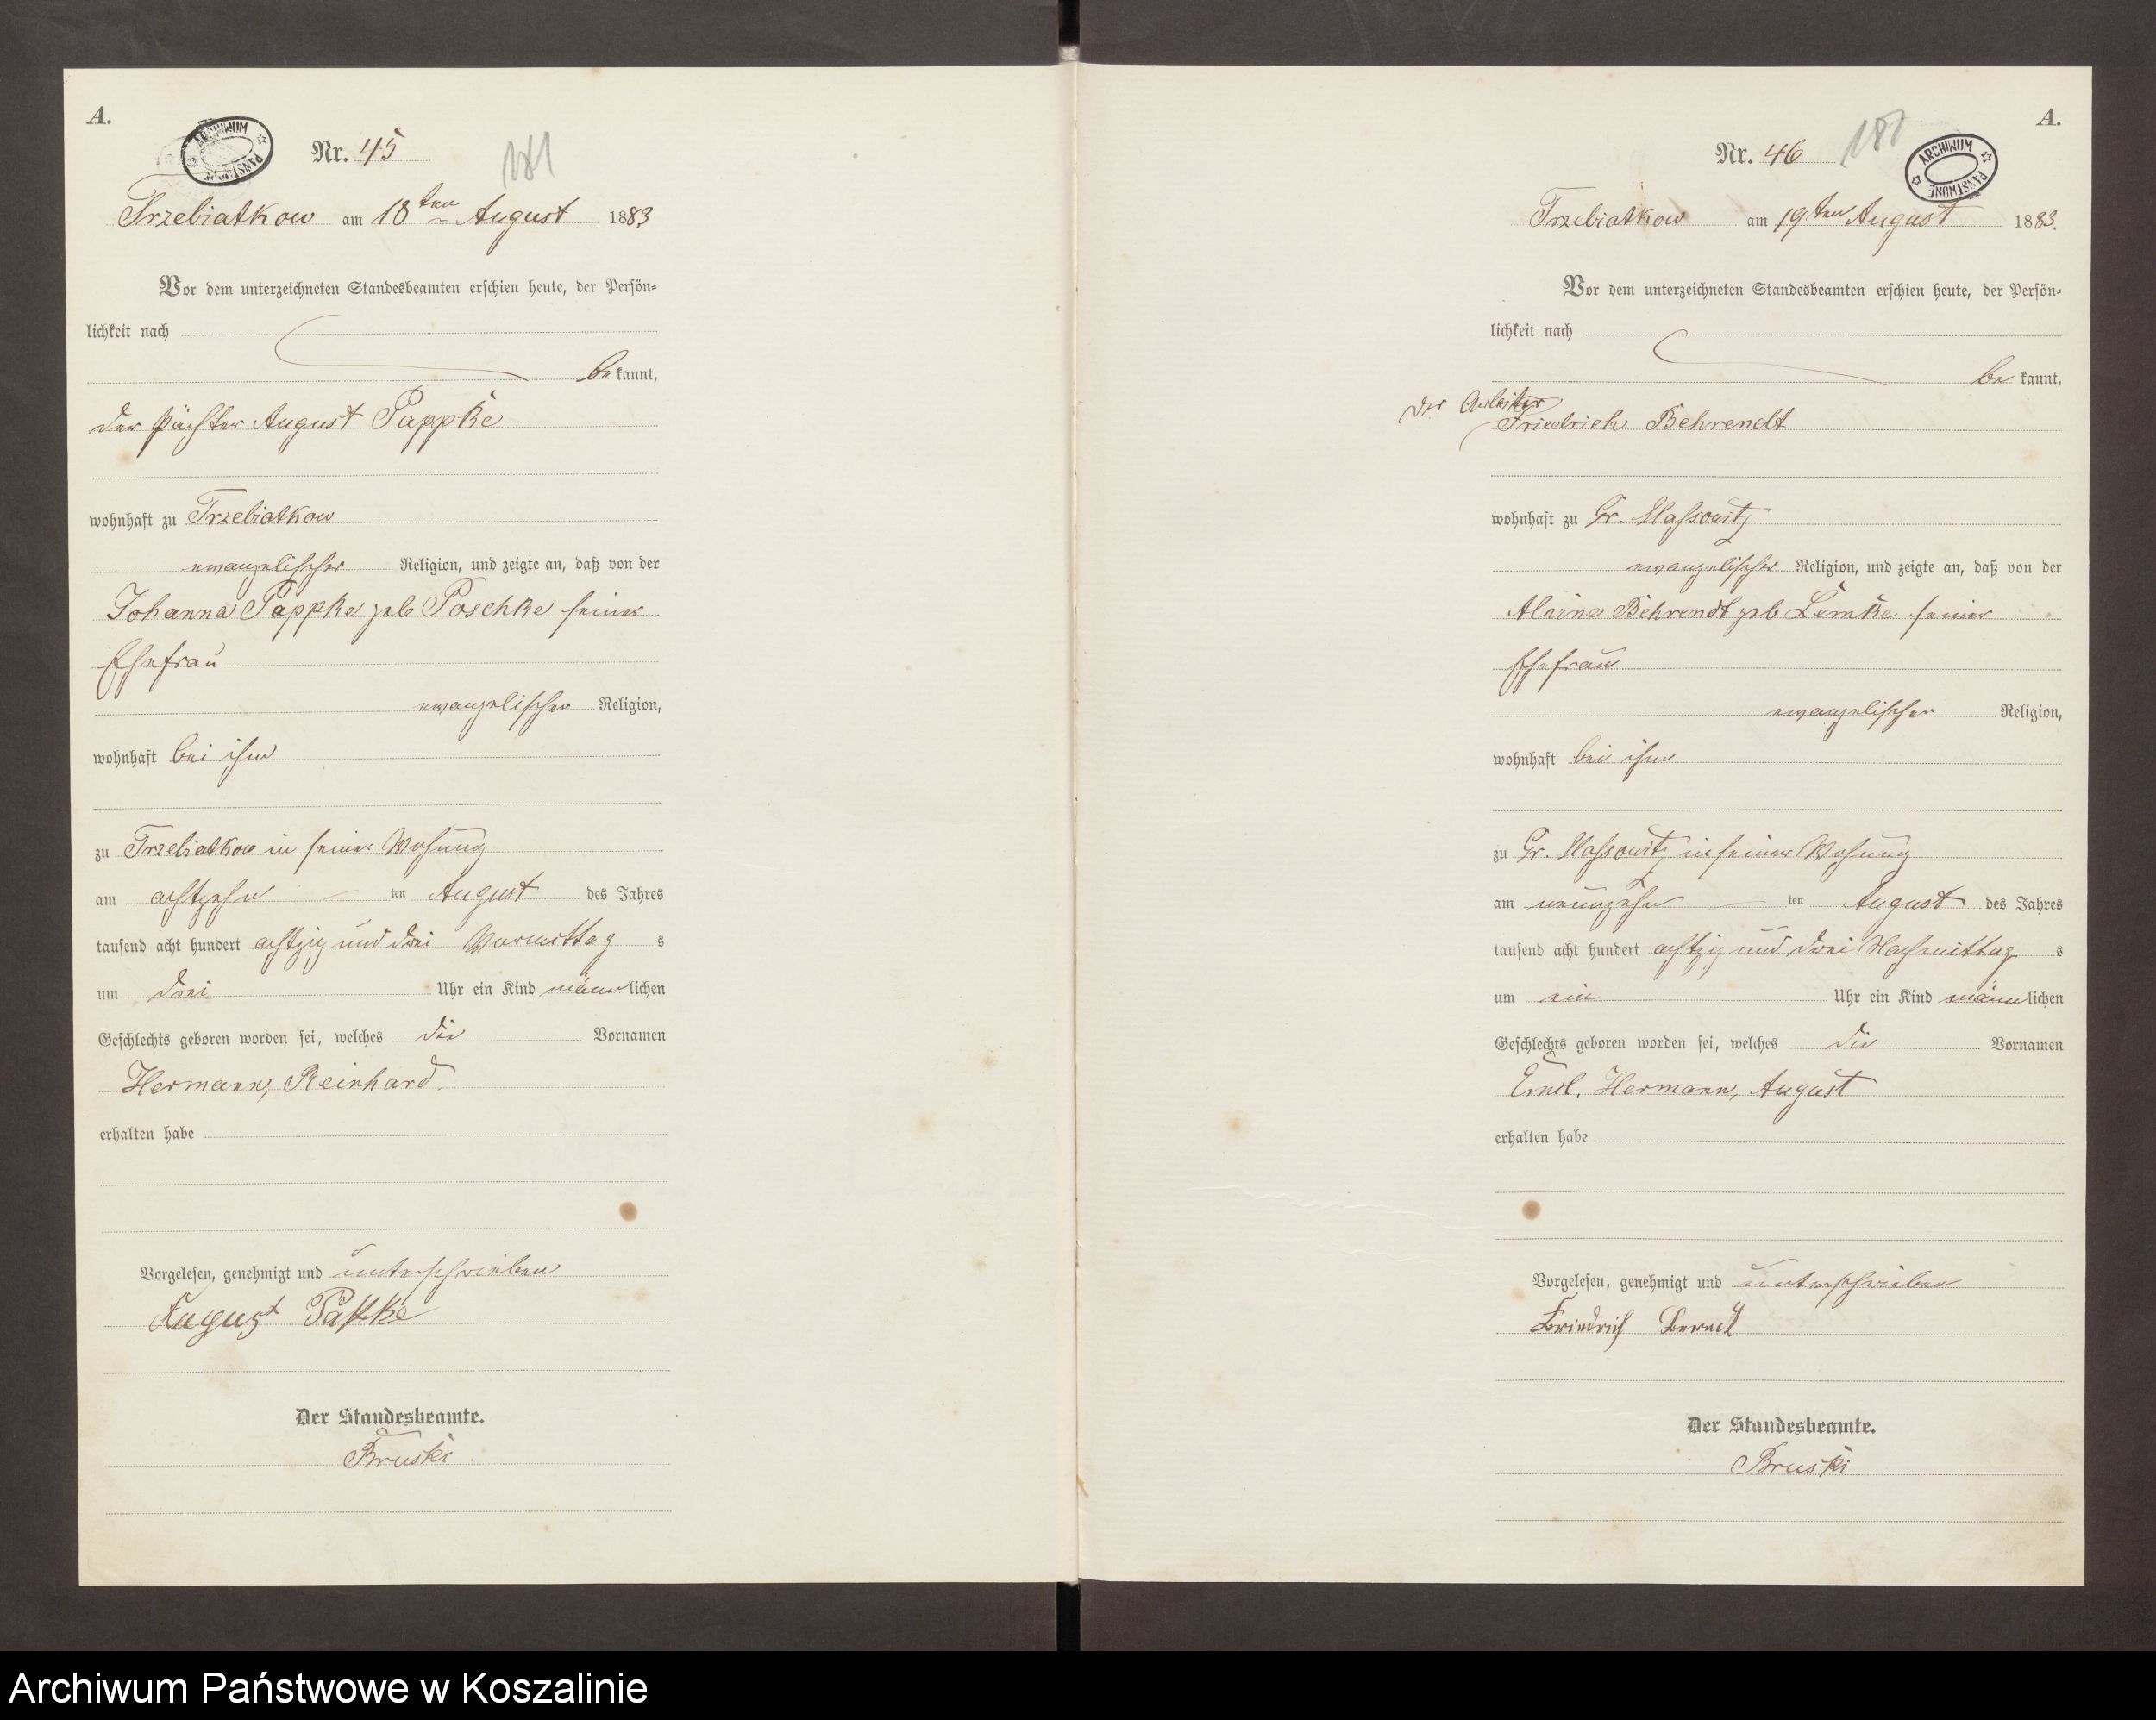 A.
ARCHIWUM PAŃSTWOWE
Nr. 45
181
Trzebiatkow am 18ten August 1883
Vor dem unterzeichneten Standesbeamten erschien heute, der Persön-
lichkeit nach
be kannt,
der Pächter August Pappke
wohnhaft zu Trzebiatkow
evangelischer Religion, und zeigte an, daß von der
Johanna Pappke geb Poschke seiner
Ehefrau
evangelischer Religion,
wohnhaft bei ihm
zu Trzebiatkow in seiner Wohnung
am achtzehn ten August des Jahres
tausend acht hundert achtzig und drei Vormittag s
um drei Uhr ein Kind männlichen
Geschlechts geboren worden sei, welches die Vornamen
Hermann, Reinhard.
erhalten habe
Vorgelesen, genehmigt und unterschrieben
August Papke
Der Standesbeamte.
Bruski
A.
Nr. 46
182
ARCHIWUM PAŃSTWOWE
Trzebiatkow am 19ten August 1883.
Vor dem unterzeichneten Standesbeamten erschien heute, der Persön-
lichkeit nach
be kannt,
der Arbeiter
Friedrich Behrendt
wohnhaft zu Gr. Massowitz
evangelischer Religion, und zeigte an, daß von der
Alvine Behrendt geb Lemke seiner
Ehefrau
evangelischer Religion,
wohnhaft bei ihm
zu Gr. Massowitz in seiner Wohnung
am neunzehn ten August des Jahres
tausend acht hundert achtzig und drei Nachmittag s
um ein Uhr ein Kind männlichen
Geschlechts geboren worden sei, welches die Vornamen
Emil, Hermann, August
erhalten habe
Vorgelesen, genehmigt und unterschrieben
Friedrich Berndt
Der Standesbeamte.
Bruski
Archiwum Państwowe w Koszalinie